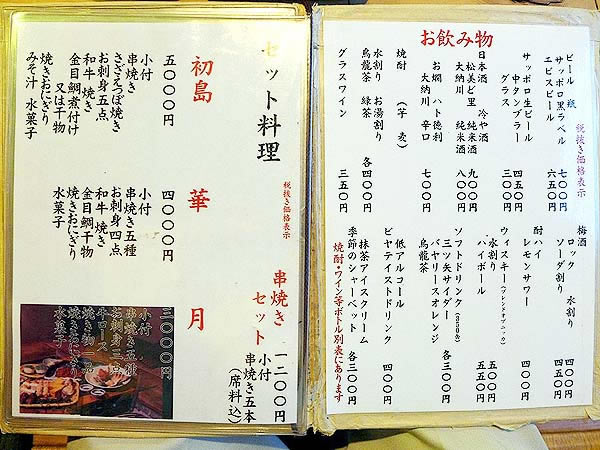 お飲み物
税抜き価格表示
ビール 瓶
サッポロ黒ラベル 七〇〇円
エビスビール 六五〇円
サッポロ生ビール
中タンブラー 四五〇円
グラス 三〇〇円
日本酒 冷や酒
松美どり 純米酒 九〇〇円
大納川 純米酒 八〇〇円
お燗 ハト徳利
大納川 辛口 七〇〇円
焼酎 (芋 麦)
水割り お湯割り
烏龍茶 緑茶 各四〇〇円
グラスワイン 三五〇円
梅酒 ロック 水割り
ソーダ割り 四〇〇円
酎ハイ
レモンサワー 四〇〇円
ウィスキー(ブレンドオブニッカ)
水割り 五〇〇円
ハイボール 五五〇円
ソフトドリンク
三ツ矢サイダー
バヤリースオレンジ
烏龍茶 各三〇〇円
低アルコール
ビヤテイストドリンク 四〇〇円
抹茶アイスクリーム
季節のシャーベット 各三〇〇円
焼酎・ワイン等ボトル別表にあります
セット料理
税抜き価格表示
初島 五〇〇〇円
小付
串焼き
さざえつぼ焼き
お刺身五点
和牛焼き
金目鯛煮付け
又は干物
焼きおにぎり
みそ汁 水菓子
華 四〇〇〇円
小付
串焼き五種
お刺身四点
和牛焼き
金目鯛干物
焼きおにぎり
水菓子
月 三〇〇〇円
小付
串焼き五種
お刺身三点
牛ロース
焼き物一品
焼きおにぎり
水菓子
串焼きセット
一二〇〇円
小付
串焼き五本
(席料込)